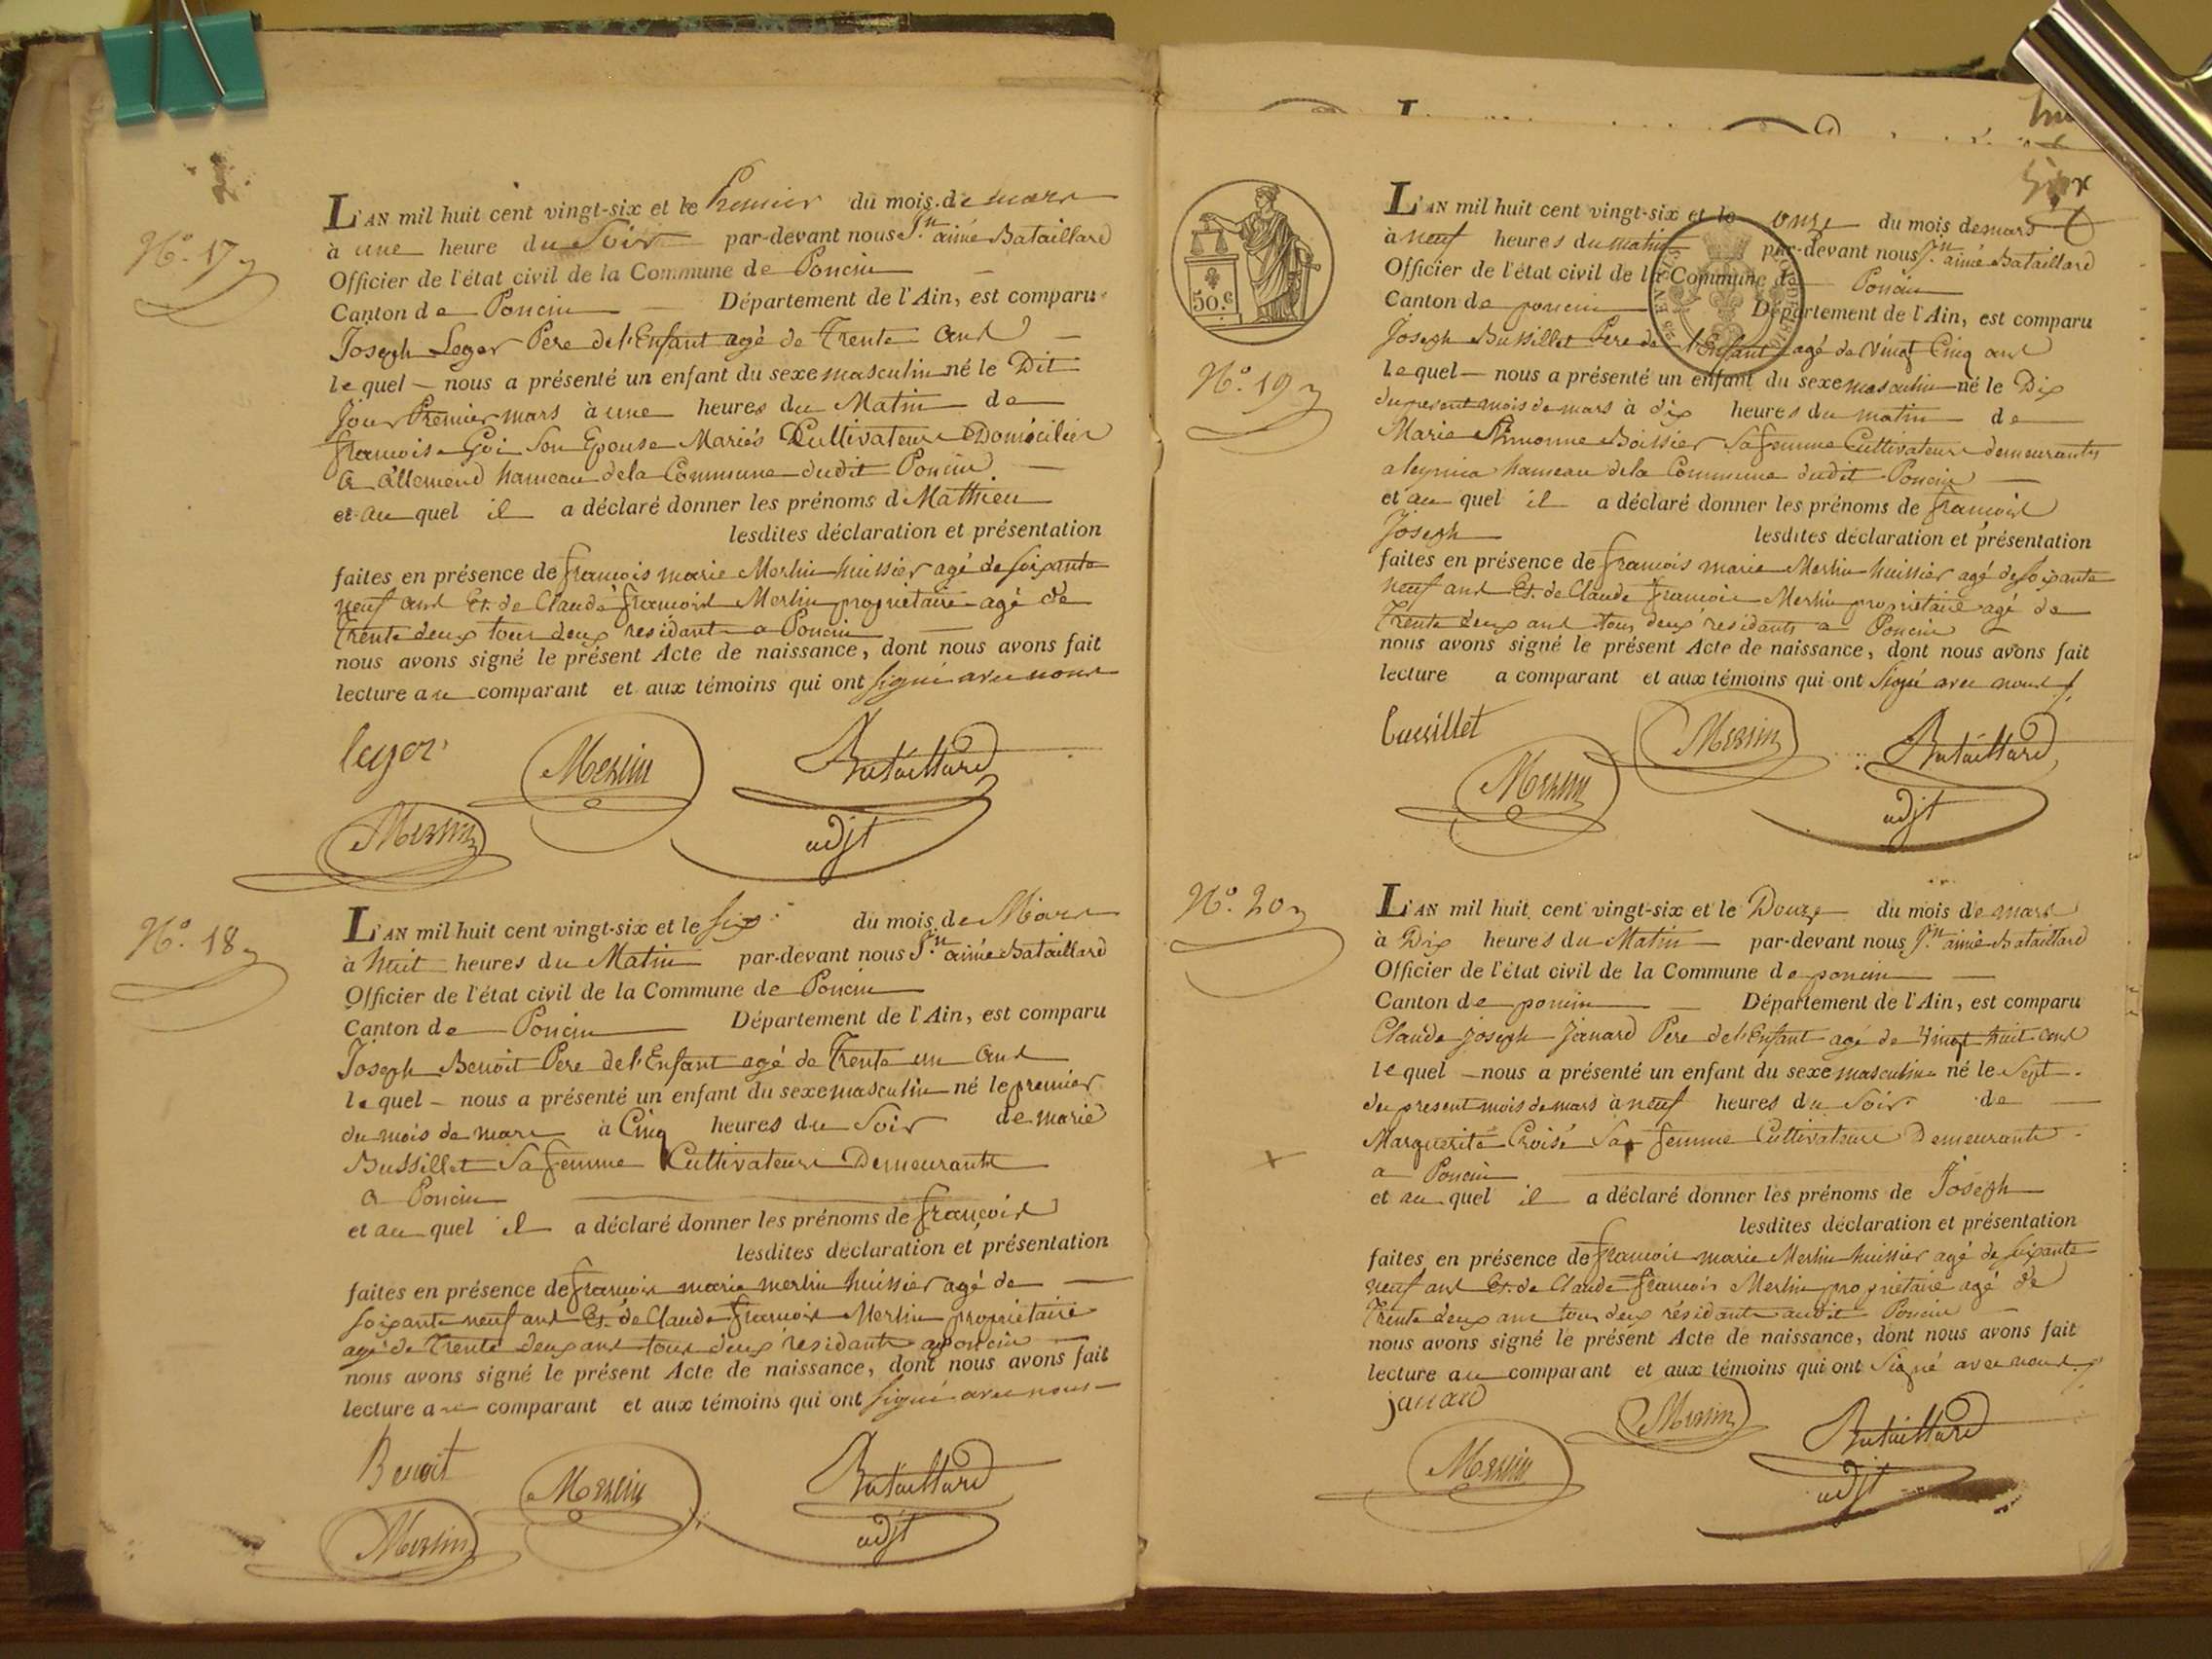 N.o 17
L'AN mil huit cent vingt-six et le Premier du mois de mars
à une heure du Soir par-devant nous J.n aimé Bataillard
Officier de l'état civil de la Commune de Poncin
Canton de Poncin Département de l'Ain, est comparu
Joseph Leger Pere de l'Enfant agé de Trente ans
lequel nous a présenté un enfant du sexe masculin né le Dit
Jour Premier mars à une heures du Matin de
francoise Goi Son Epouse Mariés Cultivateurs Domiciliés
a allemend hameau de la Commune dudit Poncin
et au quel il a déclaré donner les prénoms d Mathieu
lesdites déclaration et présentation
faites en présence de francois marie Merlin huissier agé de soixante
neuf ans Et de Claude francois Merlin propriétaire agé de
Trente deux tous deux résidants a Poncin
nous avons signé le présent Acte de naissance, dont nous avons fait
lecture au comparant et aux témoins qui ont signé avec nous
leger Merlin Bataillard
Merlin adjt
N.o 18
L'AN mil huit cent vingt-six et le six du mois de Mars
à huit heures du Matin par-devant nous J.n aimé Bataillard
Officier de l'état civil de la Commune de Poncin
Canton de Poncin Département de l'Ain, est comparu
Joseph Benoit Pere de l'Enfant agé de Trente un ans
lequel nous a présenté un enfant du sexe masculin né le premier
du mois de mars à Cinq heures du Soir de marie
Bussillet Sa femme Cultivateurs Demeurants
a Poncin
et au quel il a déclaré donner les prénoms de françois
lesdites déclaration et présentation
faites en présence de francois marie merlin huissier agé de
soixante neuf ans Et de Claude francois Merlin propriétaire
agé de Trente deux ans tous deux résidants a poncin
nous avons signé le présent Acte de naissance, dont nous avons fait
lecture au comparant et aux témoins qui ont signé avec nous
Benoit Merlin Bataillard
Merlin adjt
50.c
N.o 19
L'AN mil huit cent vingt-six et le onze du mois de mars
à neuf heures du matin par-devant nous J.n aimé Bataillard
Officier de l'état civil de la Commune de Poncin
Canton de poncin Département de l'Ain, est comparu
Joseph Bussillet Pere de l'Enfant agé de vingt Cinq ans
lequel nous a présenté un enfant du sexe masculin né le Dix
du present mois de mars à dix heures du matin de
Marie Simonne Boissier Sa femme Cultivateurs demeurants
a leymia hameau de la Commune dudit Poncin
et au quel il a déclaré donner les prénoms de françois
Joseph lesdites déclaration et présentation
faites en présence de francois marie Merlin huissier agé de soixante
neuf ans Et de Claude francois Merlin propriétaire agé de
Trente deux ans tous deux résidants a Poncin
nous avons signé le présent Acte de naissance, dont nous avons fait
lecture a comparant et aux témoins qui ont Signé avec nous
bussillet Merlin Bataillard
Merlin adjt
N.o 20
L'AN mil huit cent vingt-six et le Douze du mois de mars
à Dix heures du Matin par-devant nous J.n aimé Bataillard
Officier de l'état civil de la Commune de poncin
Canton de poncin Département de l'Ain, est comparu
Claude joseph Janard Pere de l'Enfant agé de Vingt huit ans
lequel nous a présenté un enfant du sexe masculin né le Sept
du present mois de mars à neuf heures du Soir de
Marguerite Croisé Sa femme Cultivateurs Demeurants
a Poncin
et au quel il a déclaré donner les prénoms de Joseph
lesdites déclaration et présentation
faites en présence de francois marie Merlin huissier agé de soixante
neuf ans Et de Claude francois Merlin propriétaire agé de
Trente deux ans tous deux résidants audit Poncin
nous avons signé le présent Acte de naissance, dont nous avons fait
lecture au comparant et aux témoins qui ont Signé avec nous
janard Merlin Bataillard
Merlin adjt